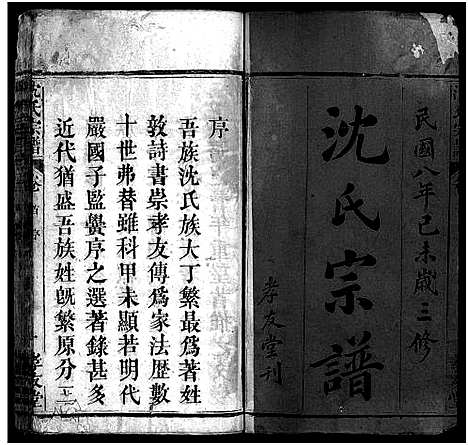 民國八年己未歲三修
沈氏宗譜
孝友堂刊
序
吾族沈氏族大丁繁最爲著姓
敦詩書崇孝友傳爲家法歷數
十世弗替雖科甲未顯若明代
嚴國子監黌序之選著錄甚多
近代猶盛吾族姓旣繁原分二
沈氏宗譜 卷首 序 一 孝友堂